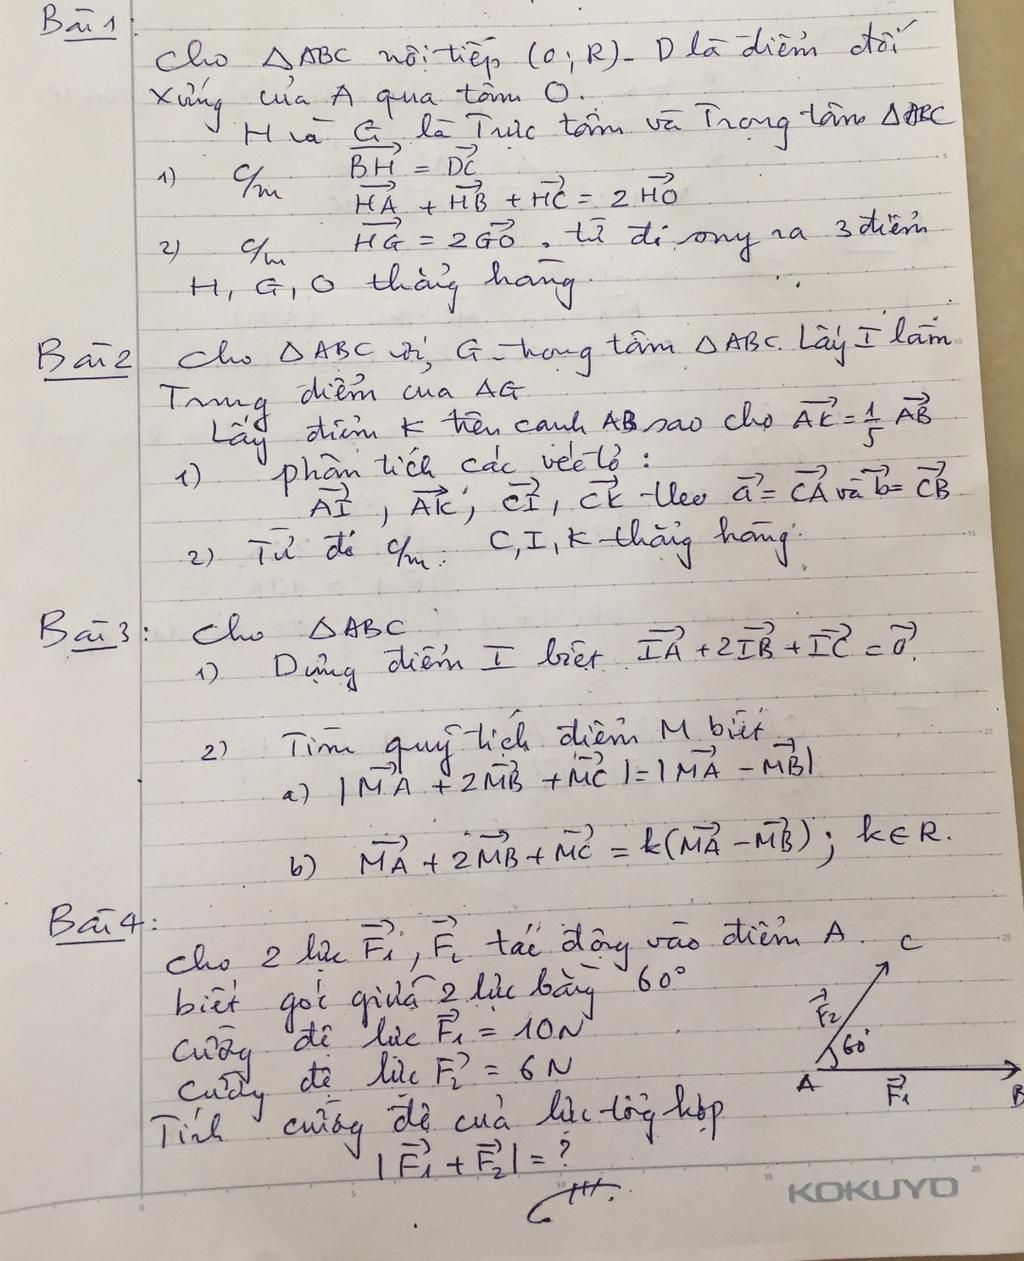 Bài 1
Cho △ABC nội tiếp (O; R). D là điểm đối
xứng của A qua tâm O.
H và G là Trực tâm và Trọng tâm △ABC
1) c/m BH⃗ = DC⃗
HA⃗ + HB⃗ + HC⃗ = 2HO⃗
2) c/m HG⃗ = 2GO⃗. từ đó suy ra 3 điểm
H, G, O thẳng hàng
Bài 2 Cho △ABC với G trọng tâm △ABC. Lấy I làm
Trung điểm của AG
Lấy điểm K trên cạnh AB sao cho AK⃗ = 1/5 AB⃗
1) phân tích các véc tơ :
AI⃗, AK⃗, CI⃗, CK⃗ theo a⃗ = CA⃗ và b⃗ = CB⃗
2) Từ đó c/m : C, I, K thẳng hàng.
Bài 3 : Cho △ABC
1) Dựng điểm I biết IA⃗ + 2IB⃗ + IC⃗ = 0⃗.
2) Tìm quỹ tích điểm M biết
a) |MA⃗ + 2MB⃗ + MC⃗| = |MA⃗ - MB⃗|
b) MA⃗ + 2MB⃗ + MC⃗ = k(MA⃗ - MB⃗) ; k ∈ R.
Bài 4 :
Cho 2 lực F₁⃗, F₂⃗ tác động vào điểm A.
biết góc giữa 2 lực bằng 60°
Cường độ lực F₁⃗ = 10N
Cường độ lực F₂⃗ = 6N
Tính cường độ của lực tổng hợp
|F₁⃗ + F₂⃗| = ?
C
F₂⃗
60°
A
F₁⃗
B
KOKUYO